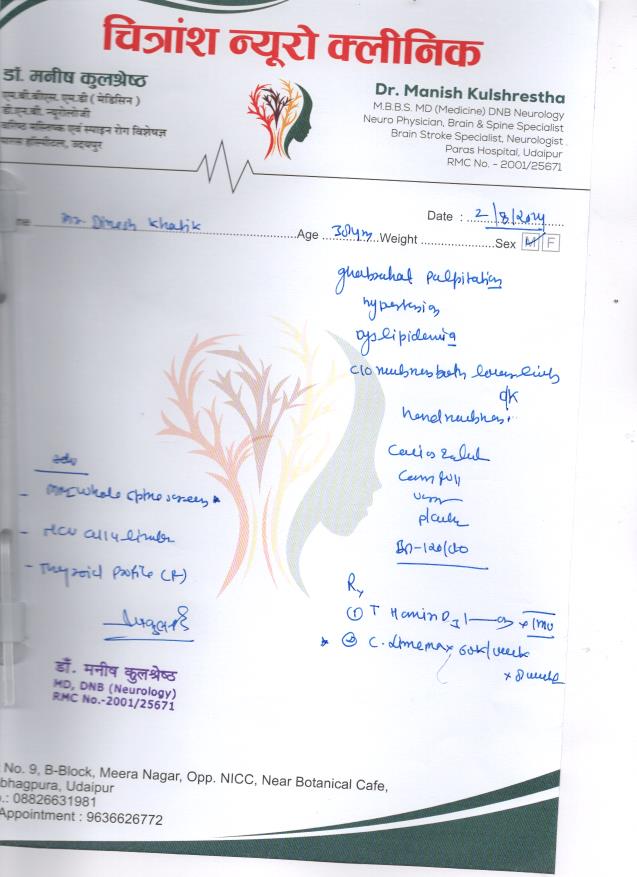 चित्रांश न्यूरो क्लीनिक
डॉ. मनीष कुलश्रेष्ठ
एम.बी.बीएस. एम.डी ( मेडिसिन )
डी.एन.बी. न्यूरोलॉजी
वरिष्ठ मस्तिष्क एवं स्पाइन रोग विशेषज्ञ
पारस हॉस्पीटल, उदयपुर
Dr. Manish Kulshrestha
M.B.B.S. MD (Medicine) DNB Neurology
Neuro Physician, Brain & Spine Specialist
Brain Stroke Specialist, Neurologist
Paras Hospital, Udaipur
RMC No. - 2001/25671
Date : 2/8/2024
me Mr Dinesh Khatik Age 38 yrs Weight Sex M F
ghabrahat palpitation
hypertension
dyslipidemia
C/O numbness both lower limbs
hand numbness
- MRI whole spine screen
- NCV all 4 limbs
- Thyroid Profile (F)
plantar
BP-120/80
Rx
① T
② C. 60K/week
x 8 weeks
डॉ. मनीष कुलश्रेष्ठ
MD, DNB (Neurology)
RMC No.-2001/25671
No. 9, B-Block, Meera Nagar, Opp. NICC, Near Botanical Cafe,
bhagpura, Udaipur
.: 08826631981
Appointment : 9636626772